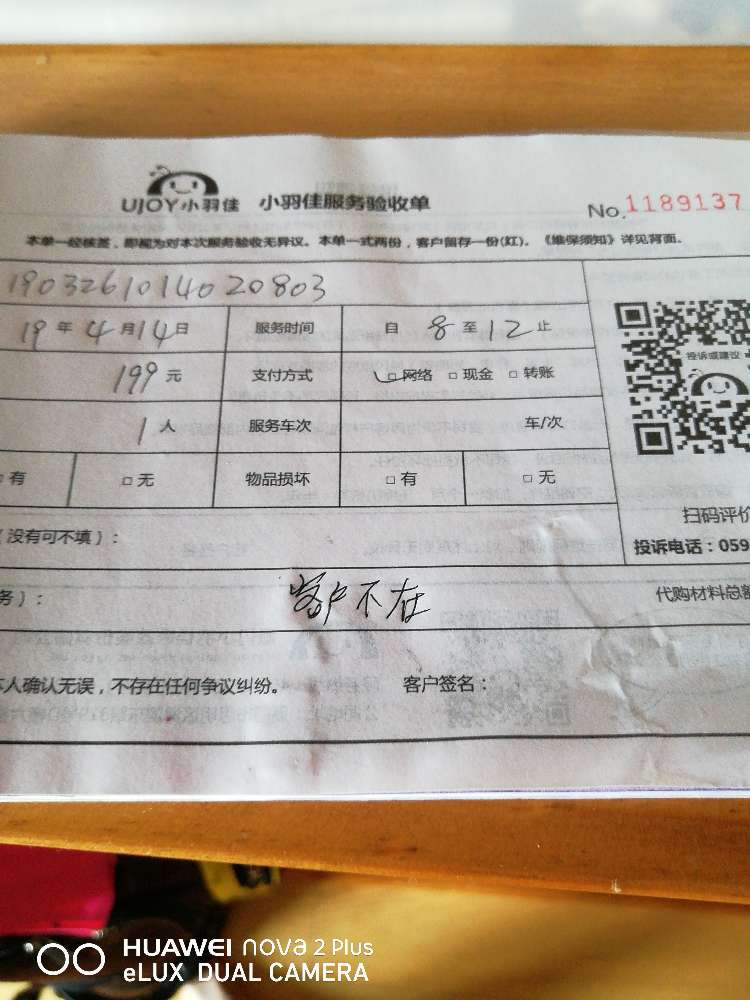 UJOY小羽佳 小羽佳服务验收单 No.1189137
本单一经核签，即视为对本次服务验收无异议。本单一式两份，客户留存一份(红)。《维保须知》详见背面。
1903261014020803
19年4月14日 服务时间 自 8 至 12 止
199元 支付方式 □网络 □现金 □转账
1人 服务车次 车/次
投诉或建议
□有 □无 物品损坏 □有 □无
扫码评价
（没有可不填）：
投诉电话：059
务）： 客户不在 代购材料总额
本人确认无误，不存在任何争议纠纷。 客户签名：
HUAWEI nova 2 Plus
eLUX DUAL CAMERA